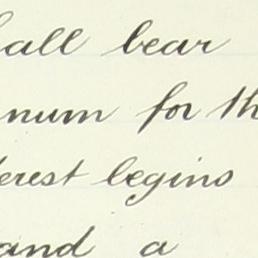 hall bear
num for th
erest begins
and a